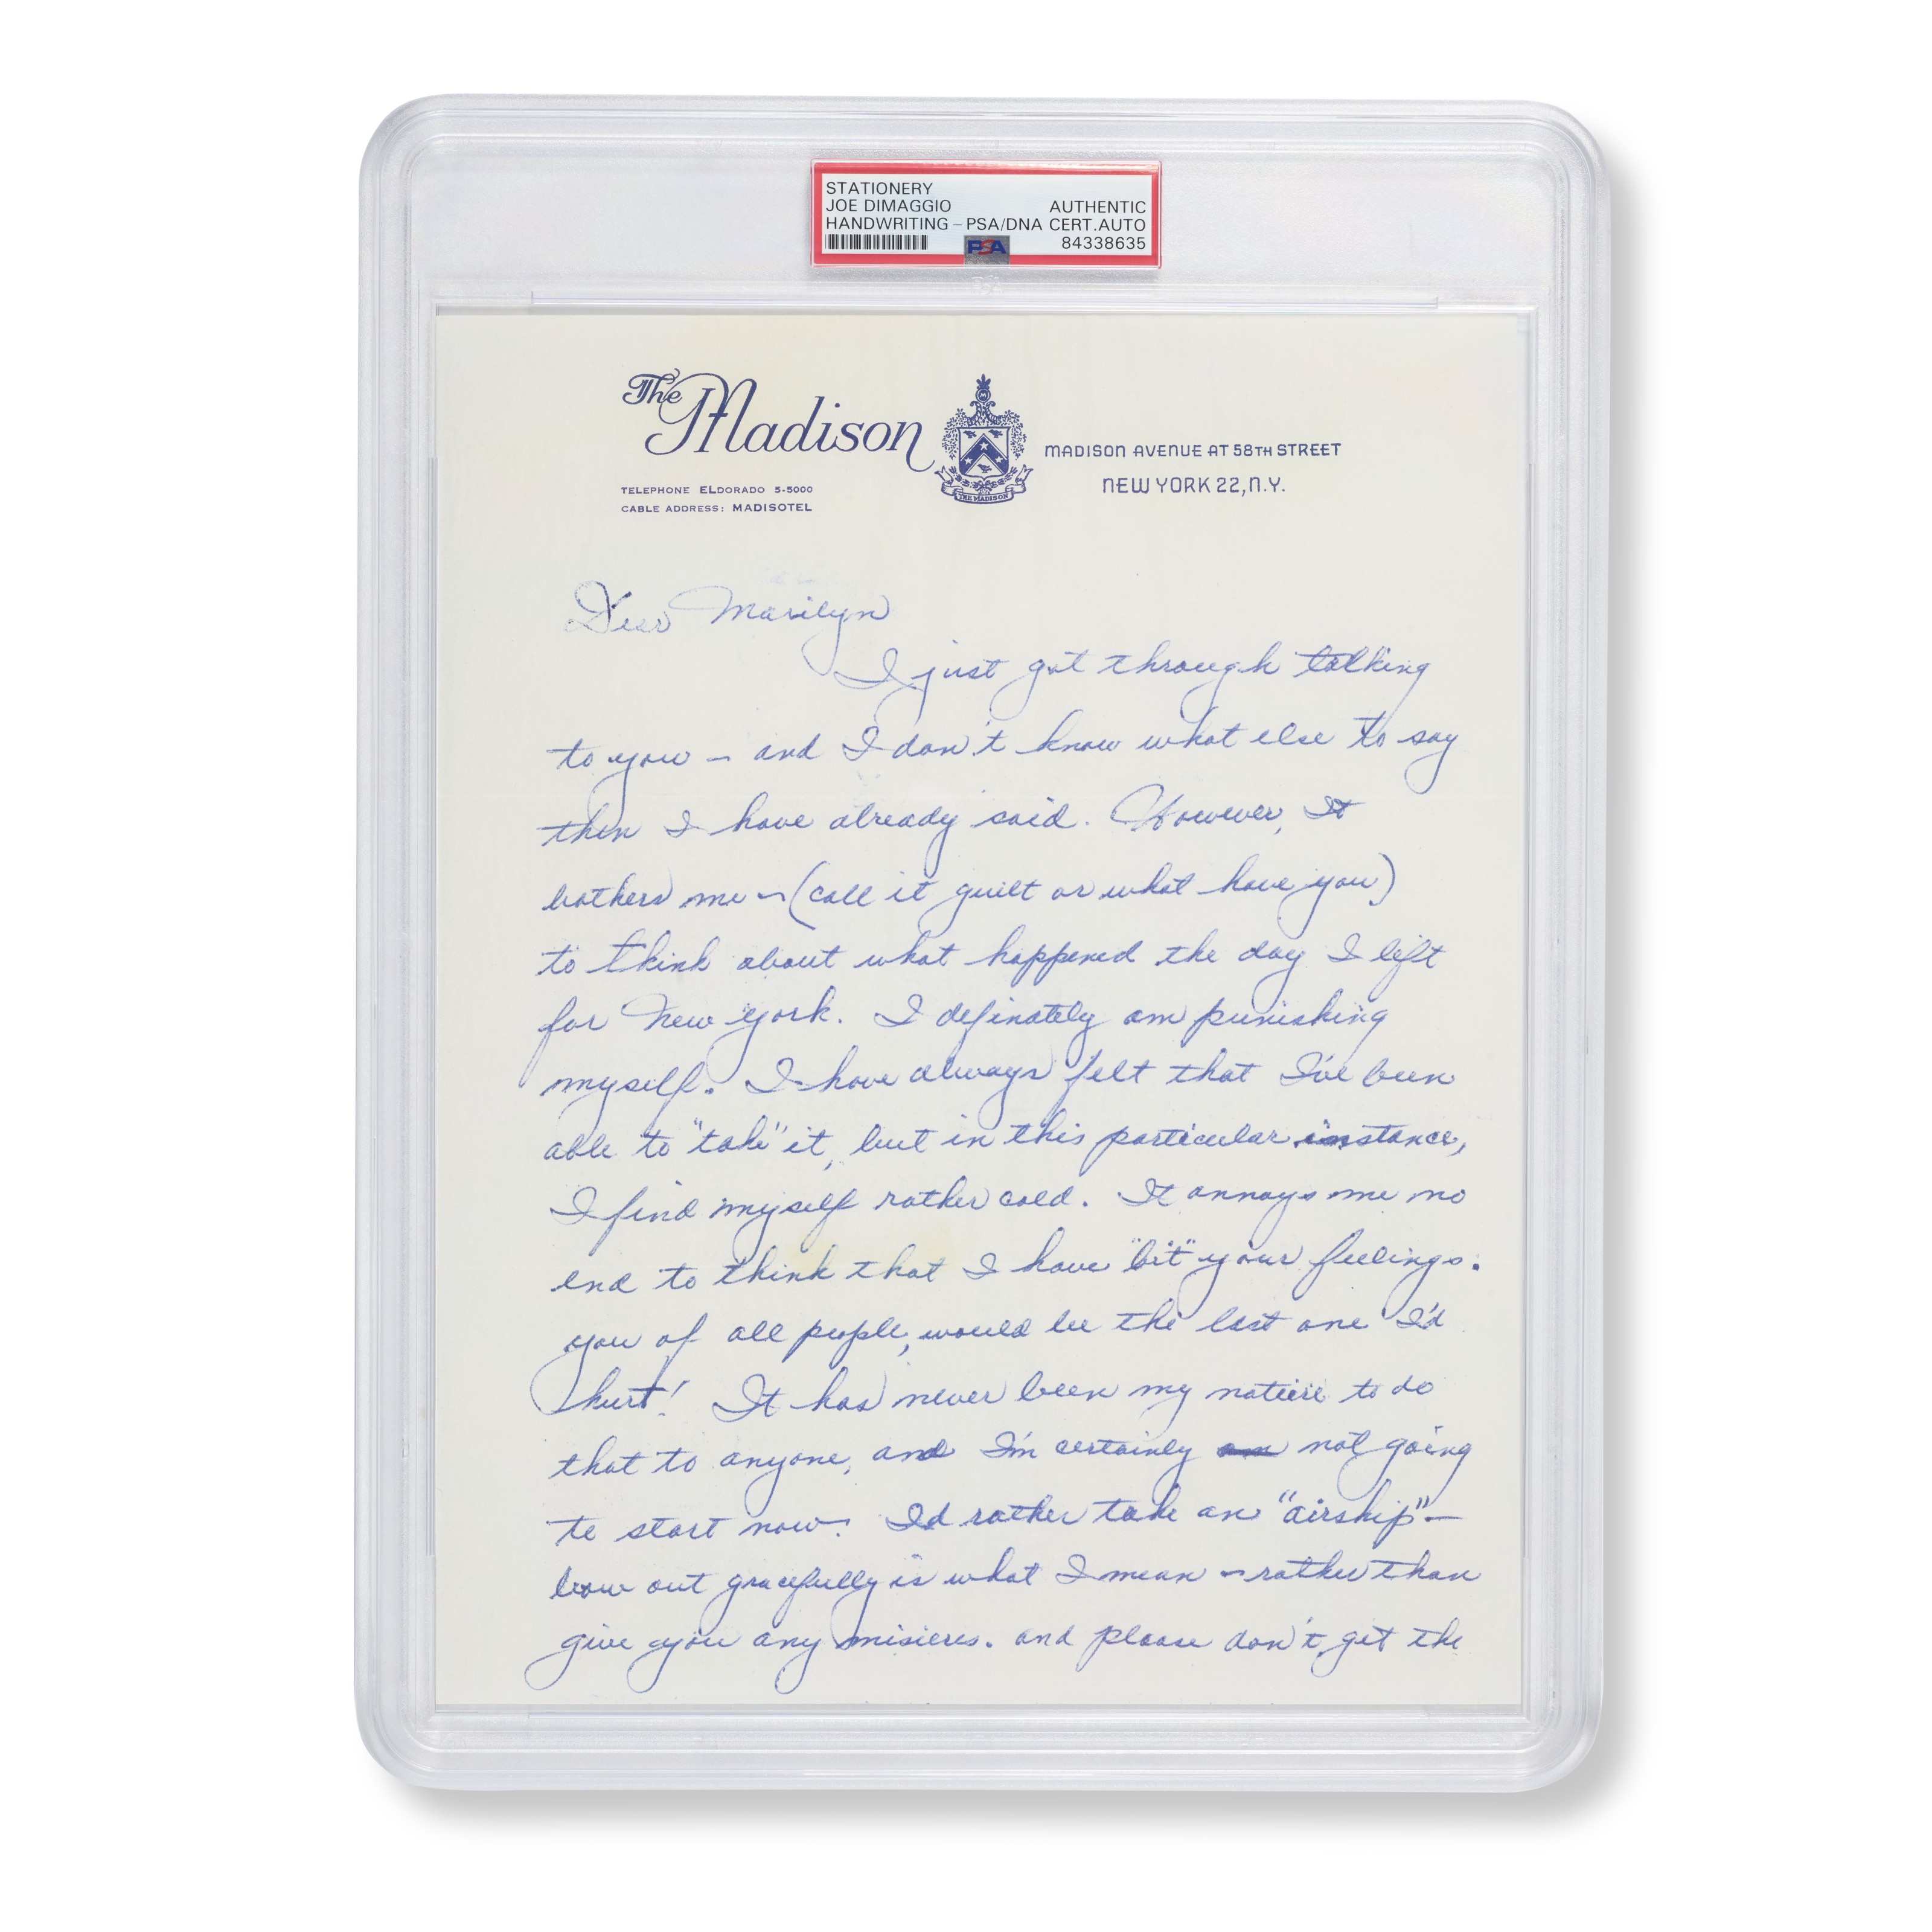 STATIONERY
JOE DIMAGGIO AUTHENTIC
HANDWRITING – PSA/DNA CERT. AUTO
PSA 84338635
The Madison
MADISON AVENUE AT 58TH STREET
NEW YORK 22, N.Y.
TELEPHONE ELDORADO 5-5000
CABLE ADDRESS: MADISOTEL
THE MADISON
Dear Marilyn
I just got through talking
to you – and I don't know what else to say
then I have already said. However, It
bothers me – (call it guilt or what have you)
to think about what happened the day I left
for New York. I definately am punishing
myself. I have always felt that I've been
able to "take" it, but in this particular instance,
I find myself rather cold. It annoys me no
end to think that I have "bit" your feelings.
you of all people, would be the last one I'd
hurt! It has never been my nature to do
that to anyone, and I'm certainly not going
to start now. I'd rather take an "airship" –
bow out gracefully is what I mean – rather than
give you any misieres. and please don't get the